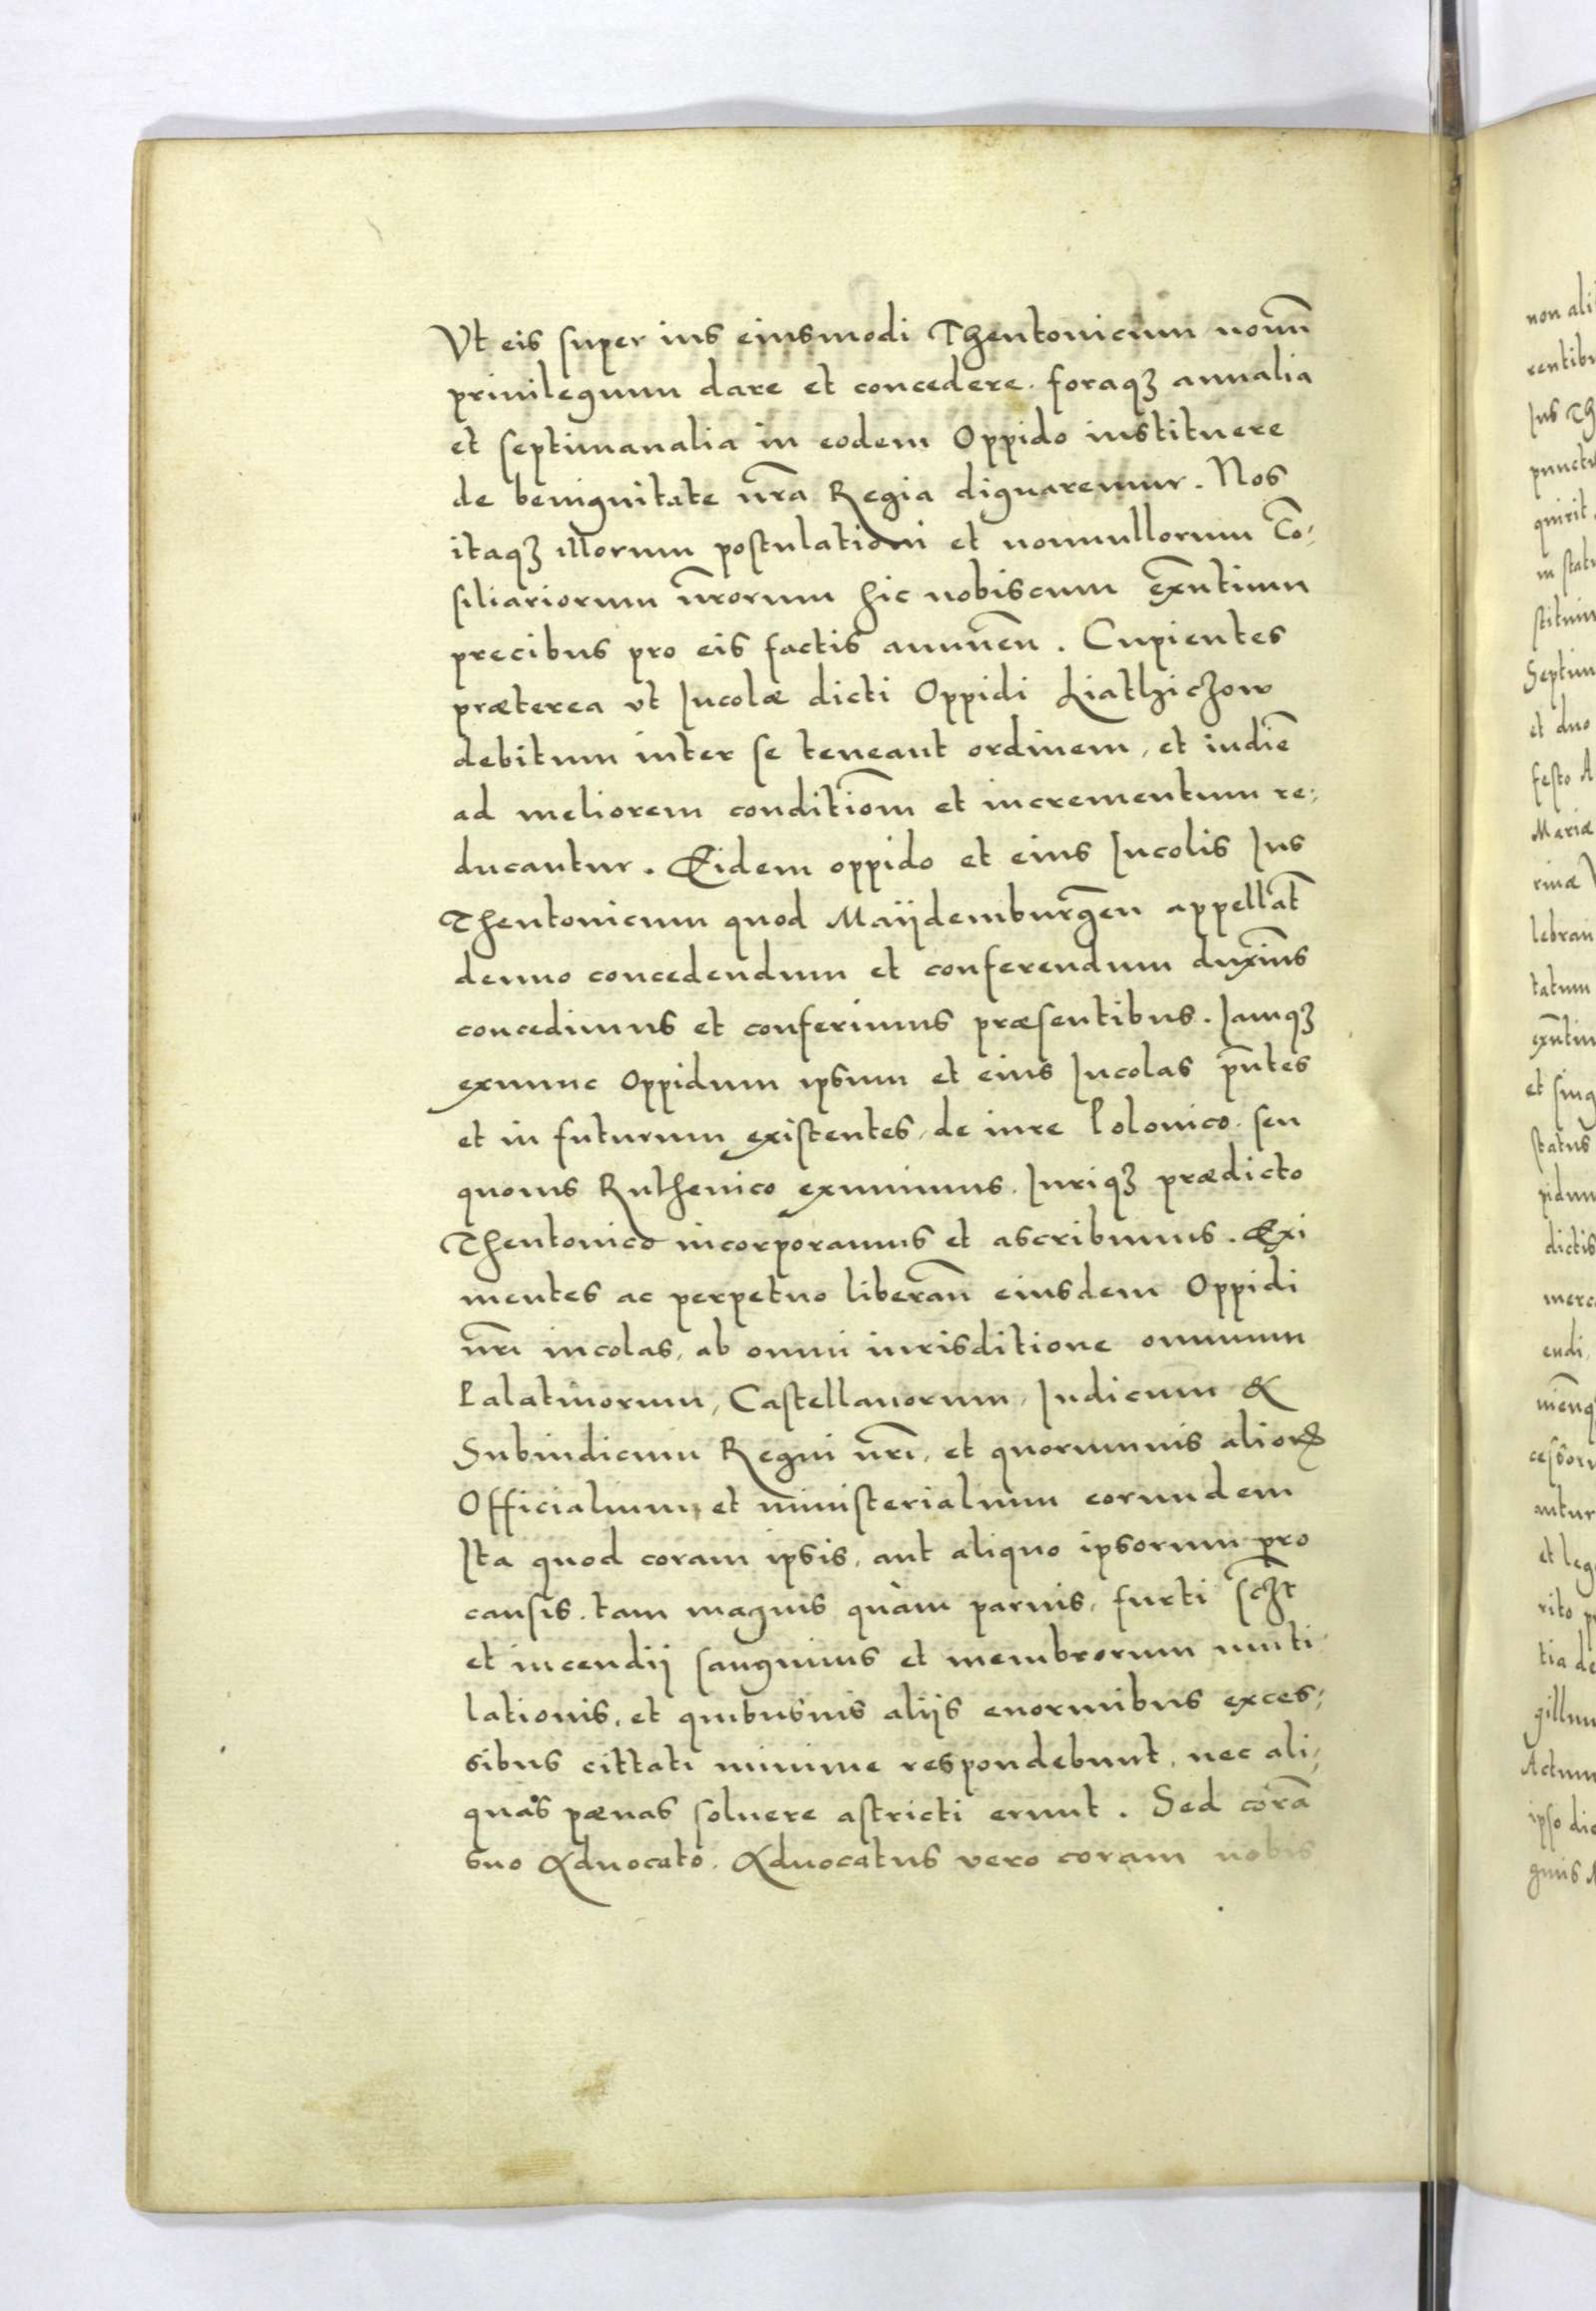 Vt eis super ius eiusmodi Theutonicum nouũ
priuilegium dare et concedere. foraqꝫ annalia
et septimanalia in eodem Oppido instituere
de benignitate nr̃a Regia dignaremur. Nos
itaqꝫ illorum postulationi et nonnullorum Cõ-
siliariorum nr̃orum hic nobiscum exñtium
precibus pro eis factis annueñ. Cupientes
præterea vt Incolæ dicti Oppidi Liathiczow
debitum inter se teneant ordinem, et indiẽ
ad meliorem conditiom̃ et incrementum re-
ducantur. Eidem oppido et eius Incolis Ius
Theutonicum quod Maÿdemburgeñ appellat̃
denuo concedendum et conferendum duxim̃s
concedimus et conferimus præsentibus. Iamqꝫ
exnunc Oppidum ipsum et eius Incolas pñtes
et in futurum existentes, de iure Polonico. seu
quouis Ruthenico eximimus. Iuriqꝫ prædicto
Theutonico incorporamus et ascribimus. Exi
mentes ac perpetuo liberañ eiusdem Oppidi
nr̃i incolas, ab omni iurisditione omnium
Palatinorum, Castellanorum, Iudicum &
Subiudicum Regni nr̃i, et quorumuis alioꝝ
Officialium, et ministerialium eorundem
Ita quod coram ipsis, aut aliquo ipsorum pro
causis. tam magnis quàm paruis, furti sczt̃
et incendij sanguinis et membrorum muti-
lationis, et quibusuis alijs enormibus exces-
sibus cittati minime respondebunt, nec ali-
quas pænas soluere astricti erunt. Sed corã
suo Aduocato. Aduocatus vero coram nobis
non ali
rentibu
Ius Th
punctu
quirit
in statu
stituim
Septim
et duo
festo A
Mariæ
rinæ V
lebran
tatum
exñtiu
et sing
status
pidum
dictis
merca
endi,
cessoru
antur
et leg
rito pr
tia de
gillum
Actum
ipso die